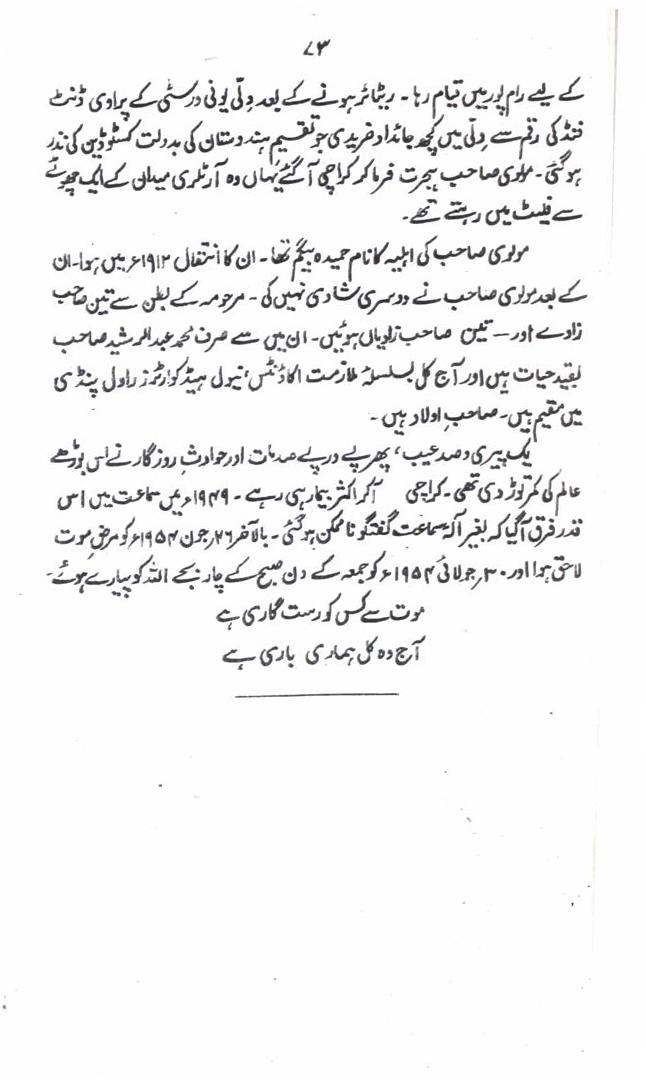 ۷۳
کے لیے رام پور میں قیام رہا۔ ریٹائر ہونے کے بعد دِلّی یونی ورسٹی کے پراوی ڈنٹ
فنڈ کی رقم سے دِلّی میں کچھ جائداد خریدی جو تقسیم ہندوستان کی بدولت کسٹوڈین کی نذر
ہو گئی۔ مولوی صاحب ہجرت فرما کر کراچی آگئے یہاں وہ آرٹلری میدان کے ایک چھوٹے
سے فلیٹ میں رہتے تھے۔
مولوی صاحب کی اہلیہ کا نام حمیدہ بیگم تھا۔ ان کا انتقال ۱۹۱۲ء میں ہوا۔ ان
کے بعد مولوی صاحب نے دوسری شادی نہیں کی۔ مرحومہ کے بطن سے تین صاحب
زادے اور — تین صاحب زادیاں ہوئیں۔ ان میں سے صرف محمد عبدالرشید صاحب
بقید حیات ہیں اور آج کل بسلسلۂ ملازمت اکاؤنٹس، نیول ہیڈ کوارٹرز راول پنڈی
میں مقیم ہیں۔ صاحبِ اولاد ہیں۔
یک پیری و صد عیب، پھر پے در پے صدمات اور حوادثِ روزگار نے اس بوڑھے
عالم کی کمر توڑ دی تھی۔ کراچی آکر اکثر بیمار ہی رہے۔ ۱۹۴۹ء میں سماعت میں اس
قدر فرق آگیا کہ بغیر آلۂ سماعت گفتگو ناممکن ہو گئی۔ بالآخر ۲۶؍ جون ۱۹۵۴ء کو مرضِ موت
لاحق ہوا اور ۳۰؍ جولائی ۱۹۵۴ء کو جمعہ کے دن صبح کے چار بجے اللہ کو پیارے ہوئے۔
موت سے کس کو رست گاری ہے
آج وہ کل ہماری باری ہے